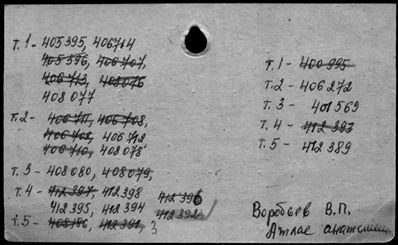 т.1 - 405395, 406714
405396, 406707,
406713, 408076
408077
т.2 - 406711, 406708,
406709, 406712
406710, 408078
т.3 - 408080, 408079,
т.4 - 412397, 412398 412396
412395, 412394 412392
т.5 - 408186, 412391, 3
т.1 - 400995
т.2 - 406272
т.3 - 401569
т.4 - 412393
т.5 - 412389
Воробьев В.П.
Атлас анатомии